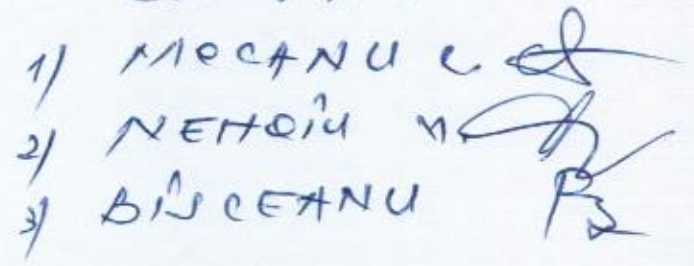 1) MOCANU C.
2) NEHOIU N.
3) BÎSCEANU